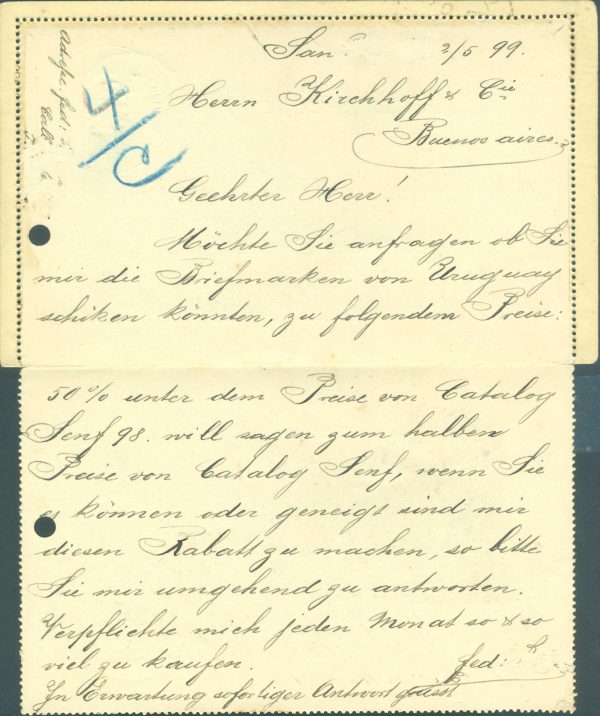 San. 2/5 99.
Herrn Kirchhoff & Cie
Buenos aires.
Geehrter Herr!
Möchte Sie anfragen ob Sie
mir die Briefmarken von Uruguay
schiken könnten, zu folgendem Preise:
50% unter dem Preise von Catalog
Senf 98. will sagen zum halben
Preise von Catalog Senf, wenn Sie
es können oder geneigt sind mir
diesen Rabatt zu machen, so bitte
Sie mir umgehend zu antworten.
Verpflichte mich jeden Monat so & so
viel zu kaufen.
fed:
In Erwartung sofortiger Antwort grüsst
4/C
Adresse: fed:
Call